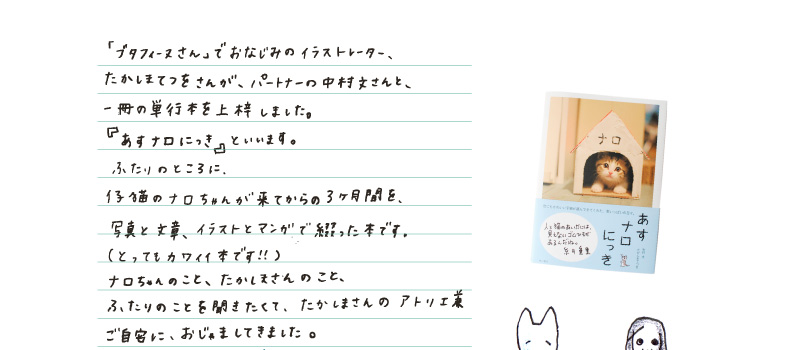 「ブタフィーヌさん」でおなじみのイラストレーター、
たかしまてつをさんが、パートナーの中村文さんと、
一冊の単行本を上梓しました。
『あすナロにっき』といいます。
ふたりのところに、
仔猫のナロちゃんが来てからの3ケ月間を、
写真と文章、イラストとマンガで綴った本です。
(とってもカワイイ本です!!)
ナロちゃんのこと、たかしまさんのこと、
ふたりのことを聞きたくて、たかしまさんのアトリエ兼
ご自宅に、おじゃましてきました。
ナロ
あす
ナロ
にっき
人と猫のあいだには、
見えないゴムひもが
あるんだね。
糸井重里